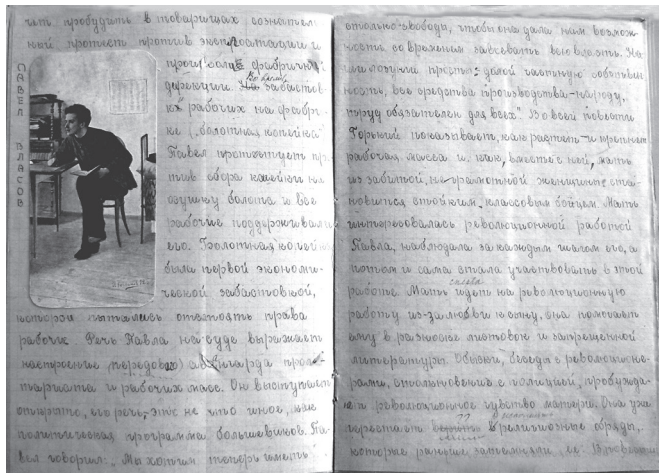 чит пробудить в товарищах сознатель-
ный протест против эксплоатации и
произвола фабричной
дирекции. Во время забастов-
ки рабочих на фабри-
ке („болотная копейка")
Павел протестует про-
тив сбора копейки на
осушку болота и все
рабочие поддерживали
его. Болотная копейка
были первой экономи-
ческой забастовкой,
которой пытались отстоять права
рабочих. Речь Павла на суде выражает
настроение передового авангарда проле-
тариата и рабочих масс. Он выступает
открыто, его речь, – это не что иное, как
политическая программа большевиков. Па-
вел говорил: „Мы хотим теперь иметь
ПАВЕЛ ВЛАСОВ
столько свободы, чтобы она дала нам возмож-
ность со временем завоевать всю власть. На-
ши лозунги просты: долой частную собствен-
ность, все средства производства – народу,
труд обязателен для всех". Во всей повести
Горький показывает, как растет и крепнет
рабочая масса и, как, вместе с ней, мать
из забитой, не грамотной женщины ста-
новится стойким, классовым бойцом. Мать
интересовалась революционной работой
Павла, наблюдала за каждым шагом его, а
потом и сама стала участвовать в этой
работе. Мать идет на революционную
работу из-за любви к сыну, она помогает
ему в разноске листовок и запрещенной
литературы. Обыски, беседы с революционе-
рами, столкновения с полицией, пробужда-
ет революционное чувство матери. Она уже
перестает в религиозные обряды,
которые раньше ее.